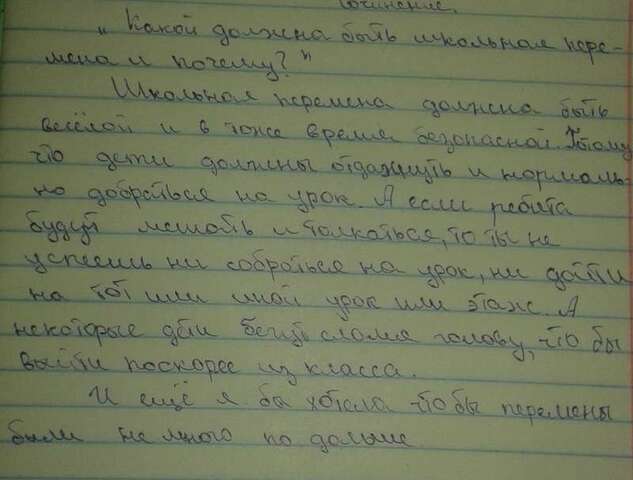 Сочинение.
„Какой должна быть школьная пере-
мена и почему?"
Школьная перемена должна быть
весёлой и в тоже время безопасной. Потому
что дети должны отдахнуть и нормаль-
но добраться на урок. А если ребята
будут мешать и толкаться, то ты не
успеешь ни собраться на урок, ни дойти
на тот или иной урок или этаж. А
некоторые дети бегут сломя голову, что бы
выйти поскорее из класса.
И ещё я бы хотела что бы перемены
были не много по дольше